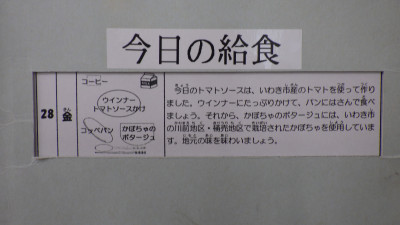 今日の給食
28
金
コーヒー
ウインナー
トマトソースかけ
コッペパン
かぼちゃの
ポタージュ
今日のトマトソースは、いわき市産のトマトを使って作り
ました。ウインナーにたっぷりかけて、パンにはさんで食べ
ましょう。それから、かぼちゃのポタージュには、いわき市
の川前地区・桶売地区で栽培されたかぼちゃを使用していま
す。地元の味を味わいましょう。